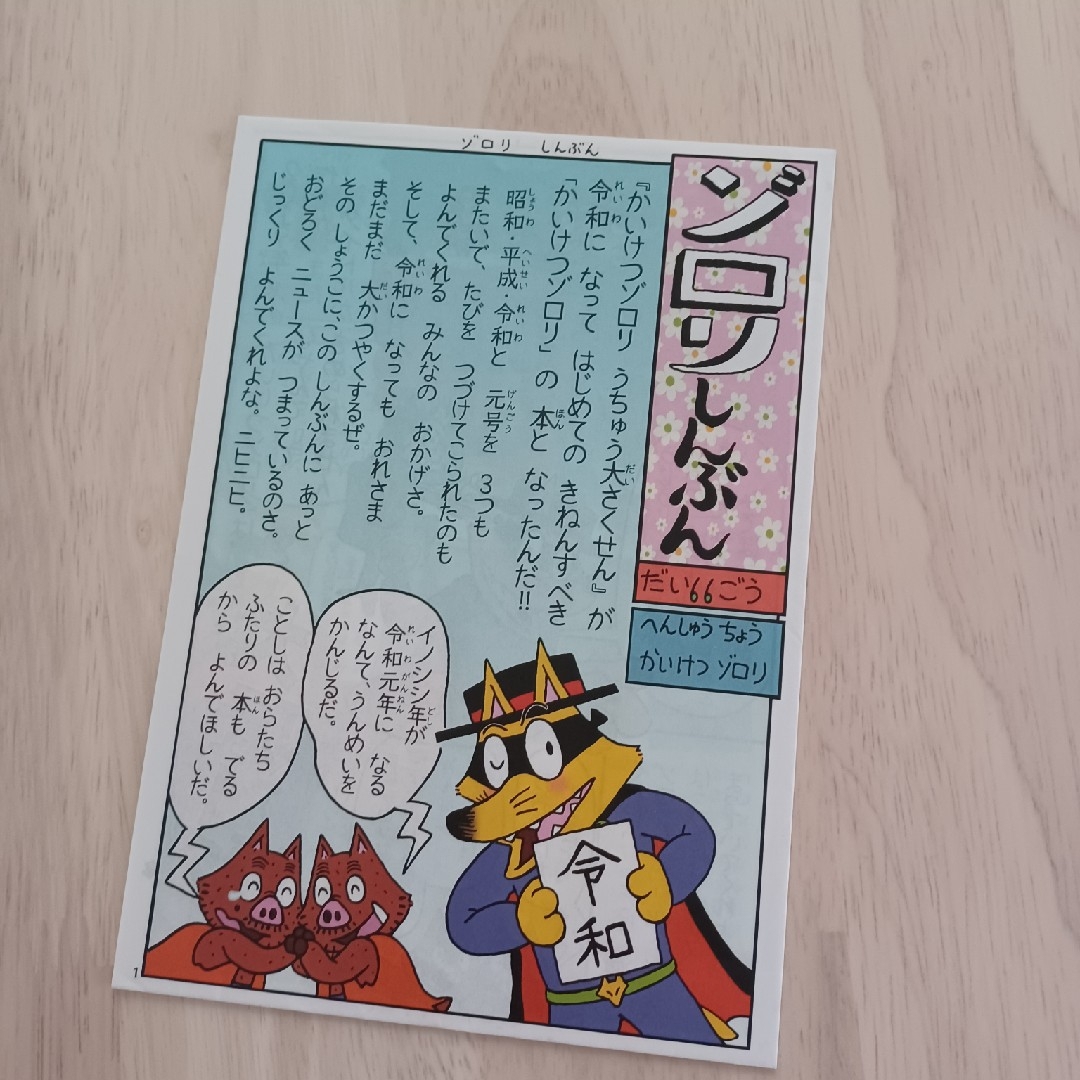 ゾロリ しんぶん
ゾロリしんぶん
だい66ごう
へんしゅうちょう
かいけつ ゾロリ
『かいけつゾロリ うちゅう大さくせん』が
令和に なって はじめての きねんすべき
「かいけつゾロリ」の 本と なったんだ!!
昭和・平成・令和と 元号を 3つも
またいで、たびを つづけてこられたのも
よんでくれる みんなの おかげさ。
そして、令和に なっても おれさま
まだまだ 大かつやくするぜ。
その しょうこに、この しんぶんに あっと
おどろく ニュースが つまっているのさ。
じっくり よんでくれよな。ニヒニヒ。
イノシシ年が
令和元年に なる
なんて、うんめいを
かんじるだ。
ことしは おらたち
ふたりの 本も でる
から よんでほしいだ。
令和
1